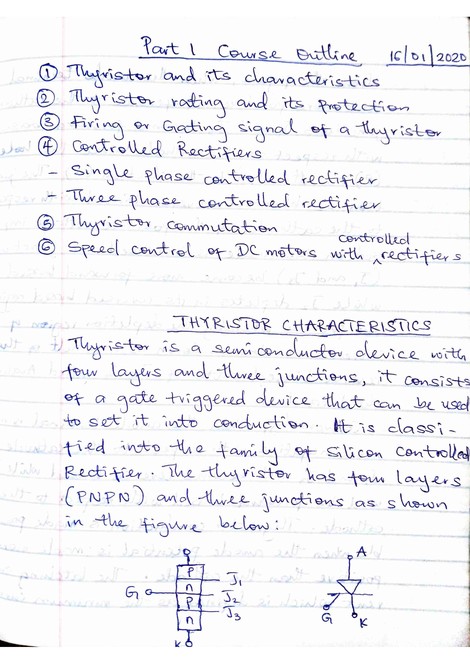 Part 1 Course Outline 16/01/2020
① Thyristor and its characteristics
② Thyristor rating and its protection
③ Firing or Gating signal of a thyristor
④ Controlled Rectifiers
- Single phase controlled rectifier
- Three phase controlled rectifier
⑤ Thyristor commutation
⑥ Speed control of DC motors with controlled rectifiers
THYRISTOR CHARACTERISTICS
Thyristor is a semiconductor device with
four layers and three junctions, it consists
of a gate triggered device that can be used
to set it into conduction. It is classi-
fied into the family of Silicon Controlled
Rectifier. The thyristor has four layers
(PNPN) and three junctions as shown
in the figure below:
P
n
P
n
G
J1
J2
J3
K
A
G
K